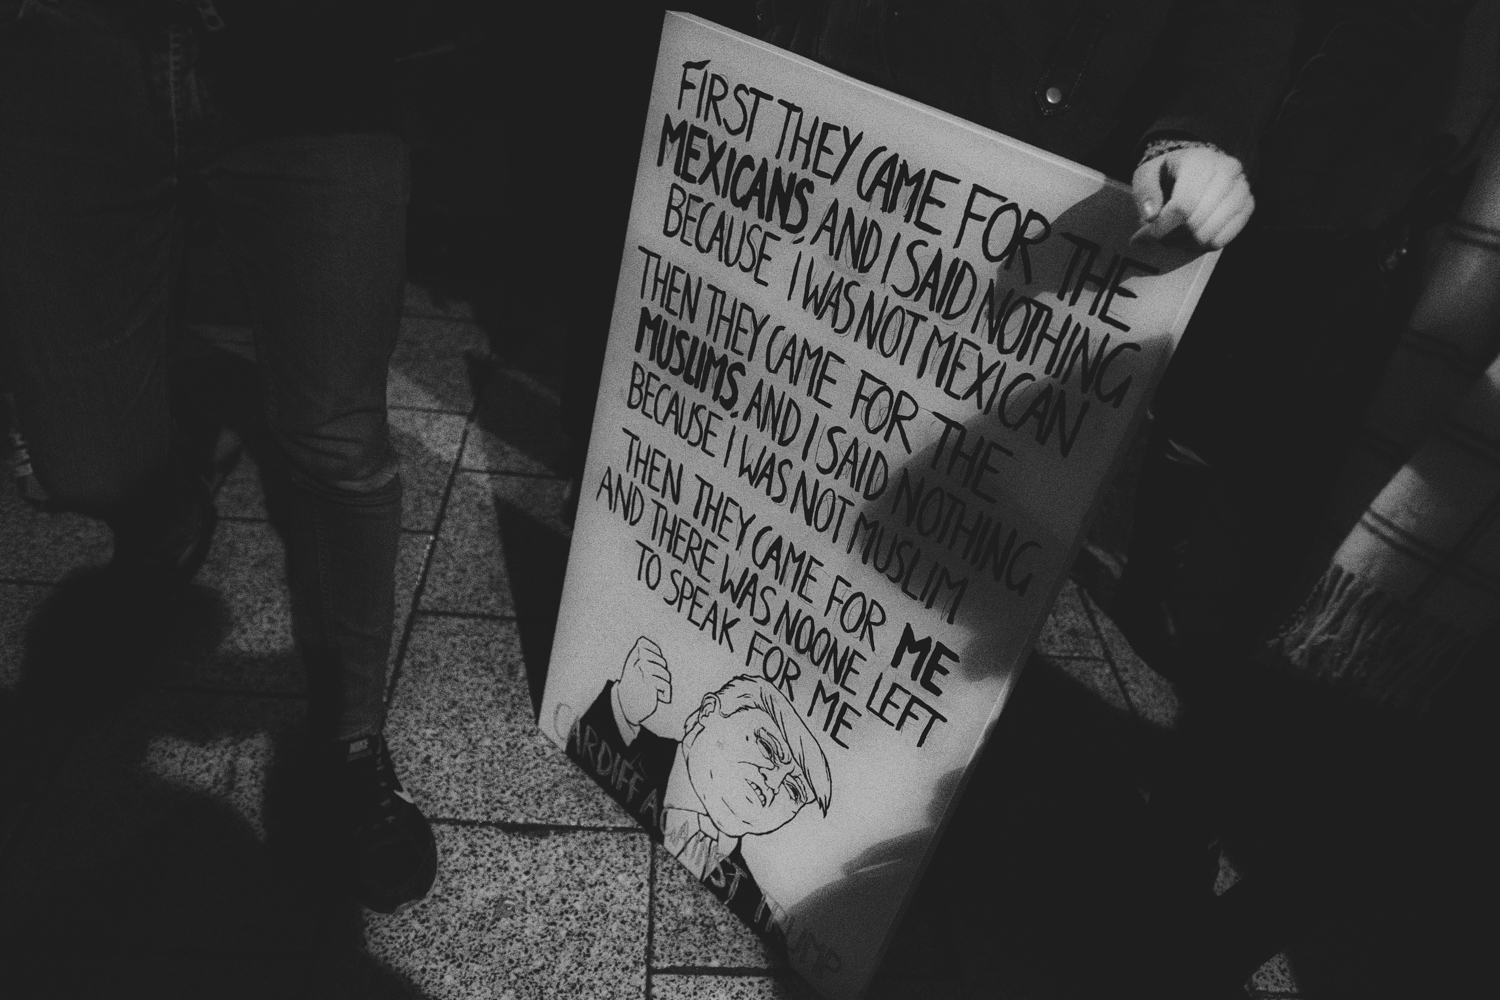 FIRST THEY CAME FOR THE
MEXICANS, AND I SAID NOTHING
BECAUSE I WAS NOT MEXICAN
THEN THEY CAME FOR THE
MUSLIMS, AND I SAID NOTHING
BECAUSE I WAS NOT MUSLIM
THEN THEY CAME FOR ME
AND THERE WAS NOONE LEFT
TO SPEAK FOR ME
CARDIFF AGAINST TRUMP